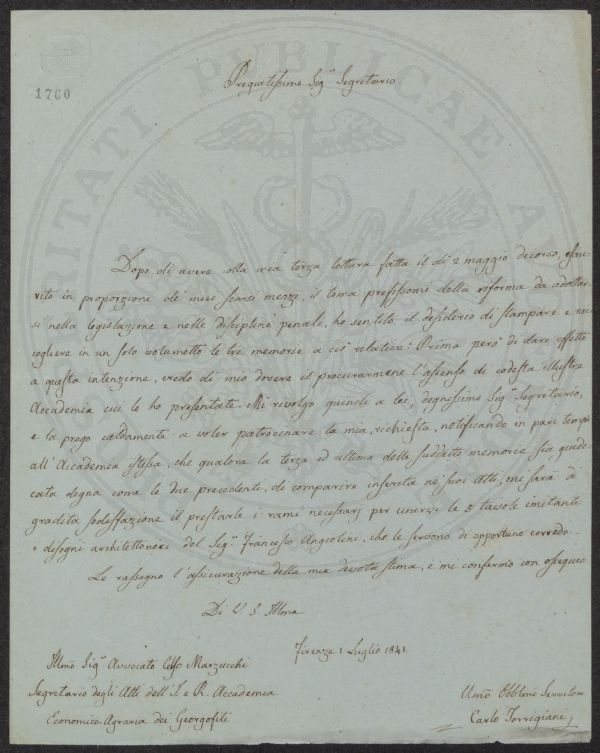 1760
Pregiatissimo Sig.r Segretario
Dopo di avere colla mia terza lettura fatta il dì 2 maggio decorso, esau-
rito in proporzione de' miei scarsi mezzi, il tema prefissomi della riforma da adottar-
si nella legislazione e nelle discipline penali, ho sentito il desiderio di stampare e rac-
cogliere in un solo volumetto le tre memorie a ciò relative: Prima però di dare effetto
a questa intenzione, credo di mio dovere il procurarmene l'assenso di codesta illustre
Accademia cui le ho presentate. Mi rivolgo quindi a lei, degnissimo Sig.r Segretario,
e la prego caldamente a voler patrocinare la mia richiesta, notificando in pari tempo
all'Accademia stessa, che qualora la terza ed ultima delle suddette memorie, sia giudi-
cata degna come le due precedenti, di comparire inserita ne' suoi Atti, mi sarà di
gradita sodisfazione il prestarle i rami necessarj per unirvi le 5 tavole imitanti
i disegni architettonici del Sig.r Francesco Angiolini, che le servono di opportuno corredo.
Le rassegno l'assicurazione della mia devota stima, e mi confermo con ossequio
Di V. S. Illma
Firenze 1 Luglio 1841.
Illmo Sig.r Avvocato Celso Marzucchi
Segretario degli Atti dell'I. e R. Accademia
Economico-Agraria dei Georgofili
Umo Obblmo Servitore
Carlo Torrigiani